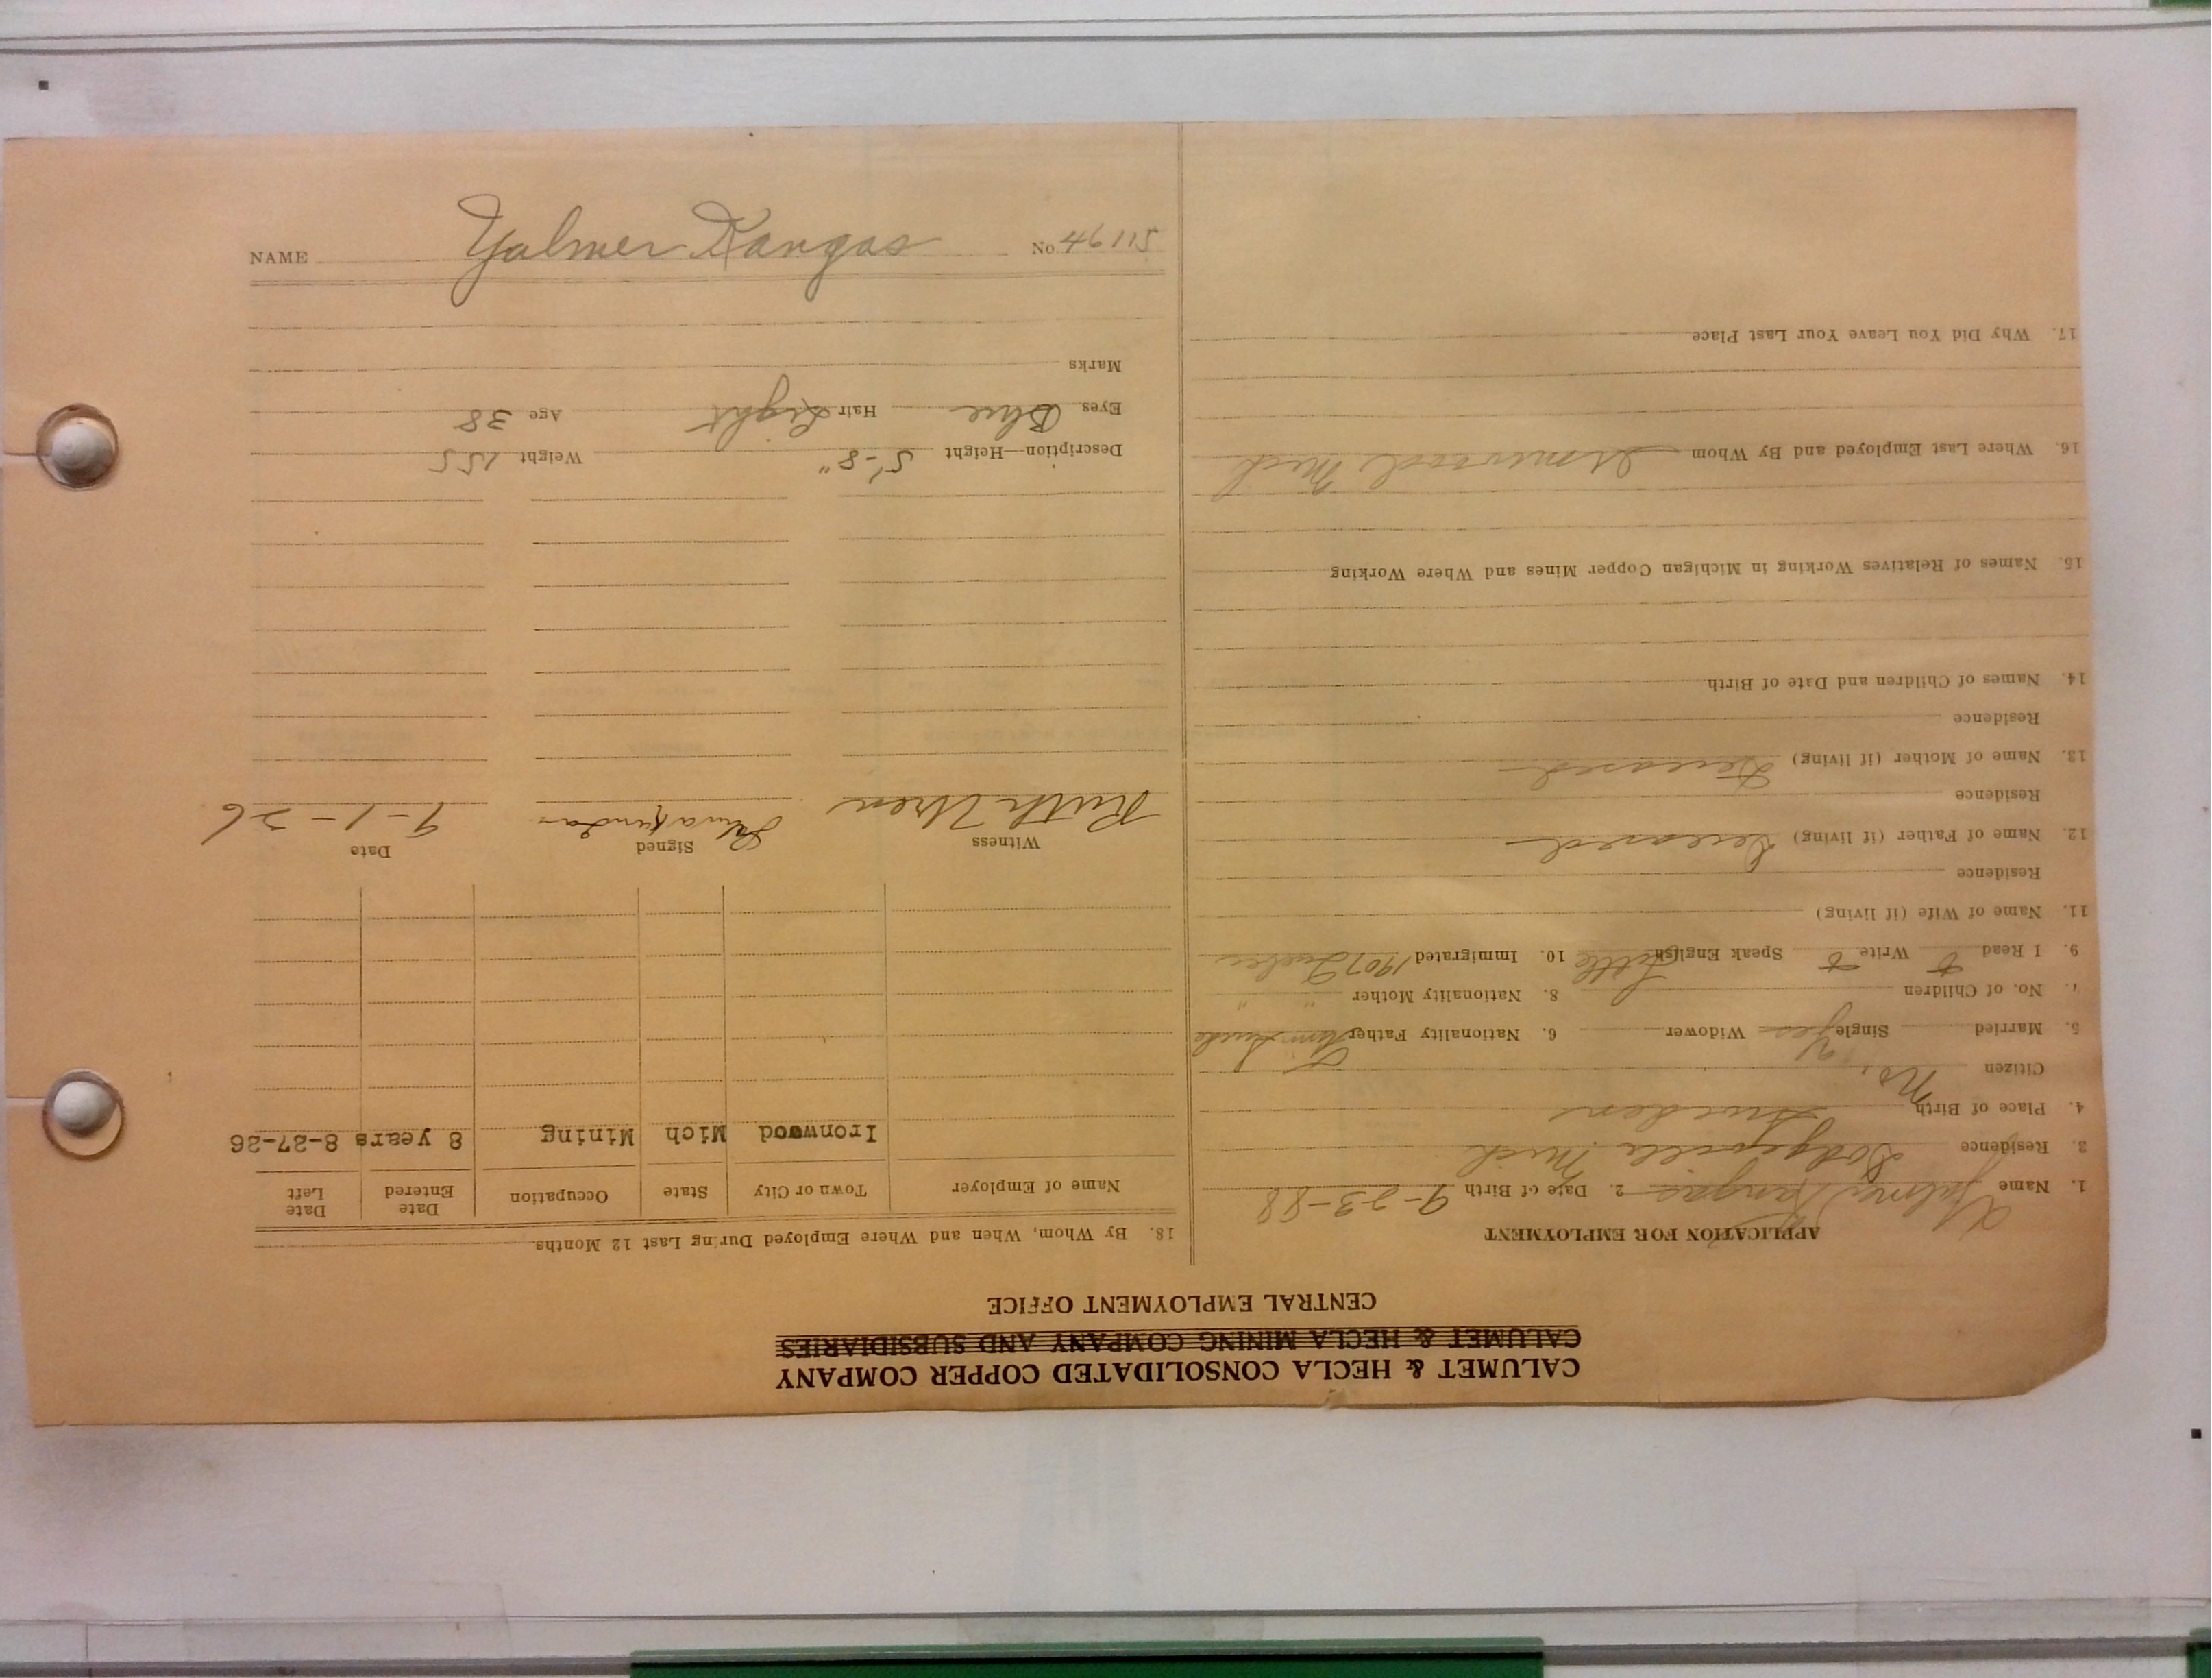 CALUMET & HECLA CONSOLIDATED COPPER COMPANY
CALUMET & HECLA MINING COMPANY AND SUBSIDIARIES
CENTRAL EMPLOYMENT OFFICE
APPLICATION FOR EMPLOYMENT
1. Name Yalmer Kangas 2. Date of Birth 9-23-88
3. Residence Dodgeville Mich
4. Place of Birth Sweden
Citizen No.
5. Married Single Yes Widower 6. Nationality Father Finn Swede
7. No. of Children 8. Nationality Mother " "
9. I Read Write Speak English Little 10. Immigrated 1907 Quebec
11. Name of Wife (if living)
Residence
12. Name of Father (if living) Deceased
Residence
13. Name of Mother (if living) Deceased
Residence
14. Names of Children and Date of Birth
15. Names of Relatives Working in Michigan Copper Mines and Where Working
16. Where Last Employed and By Whom Ironwood Mich
17. Why Did You Leave Your Last Place
18. By Whom, When and Where Employed During Last 12 Months
Name of Employer Town or City State Occupation Date Entered Date Left
Ironwood Mich Mining 8 years 8-27-26
Witness Signed Date
Ruth Uren 9-1-26
Description—Height 5'-8" Weight 155
Eyes Blue Hair Light Age 38
Marks
NAME Yalmer Kangas No. 46115